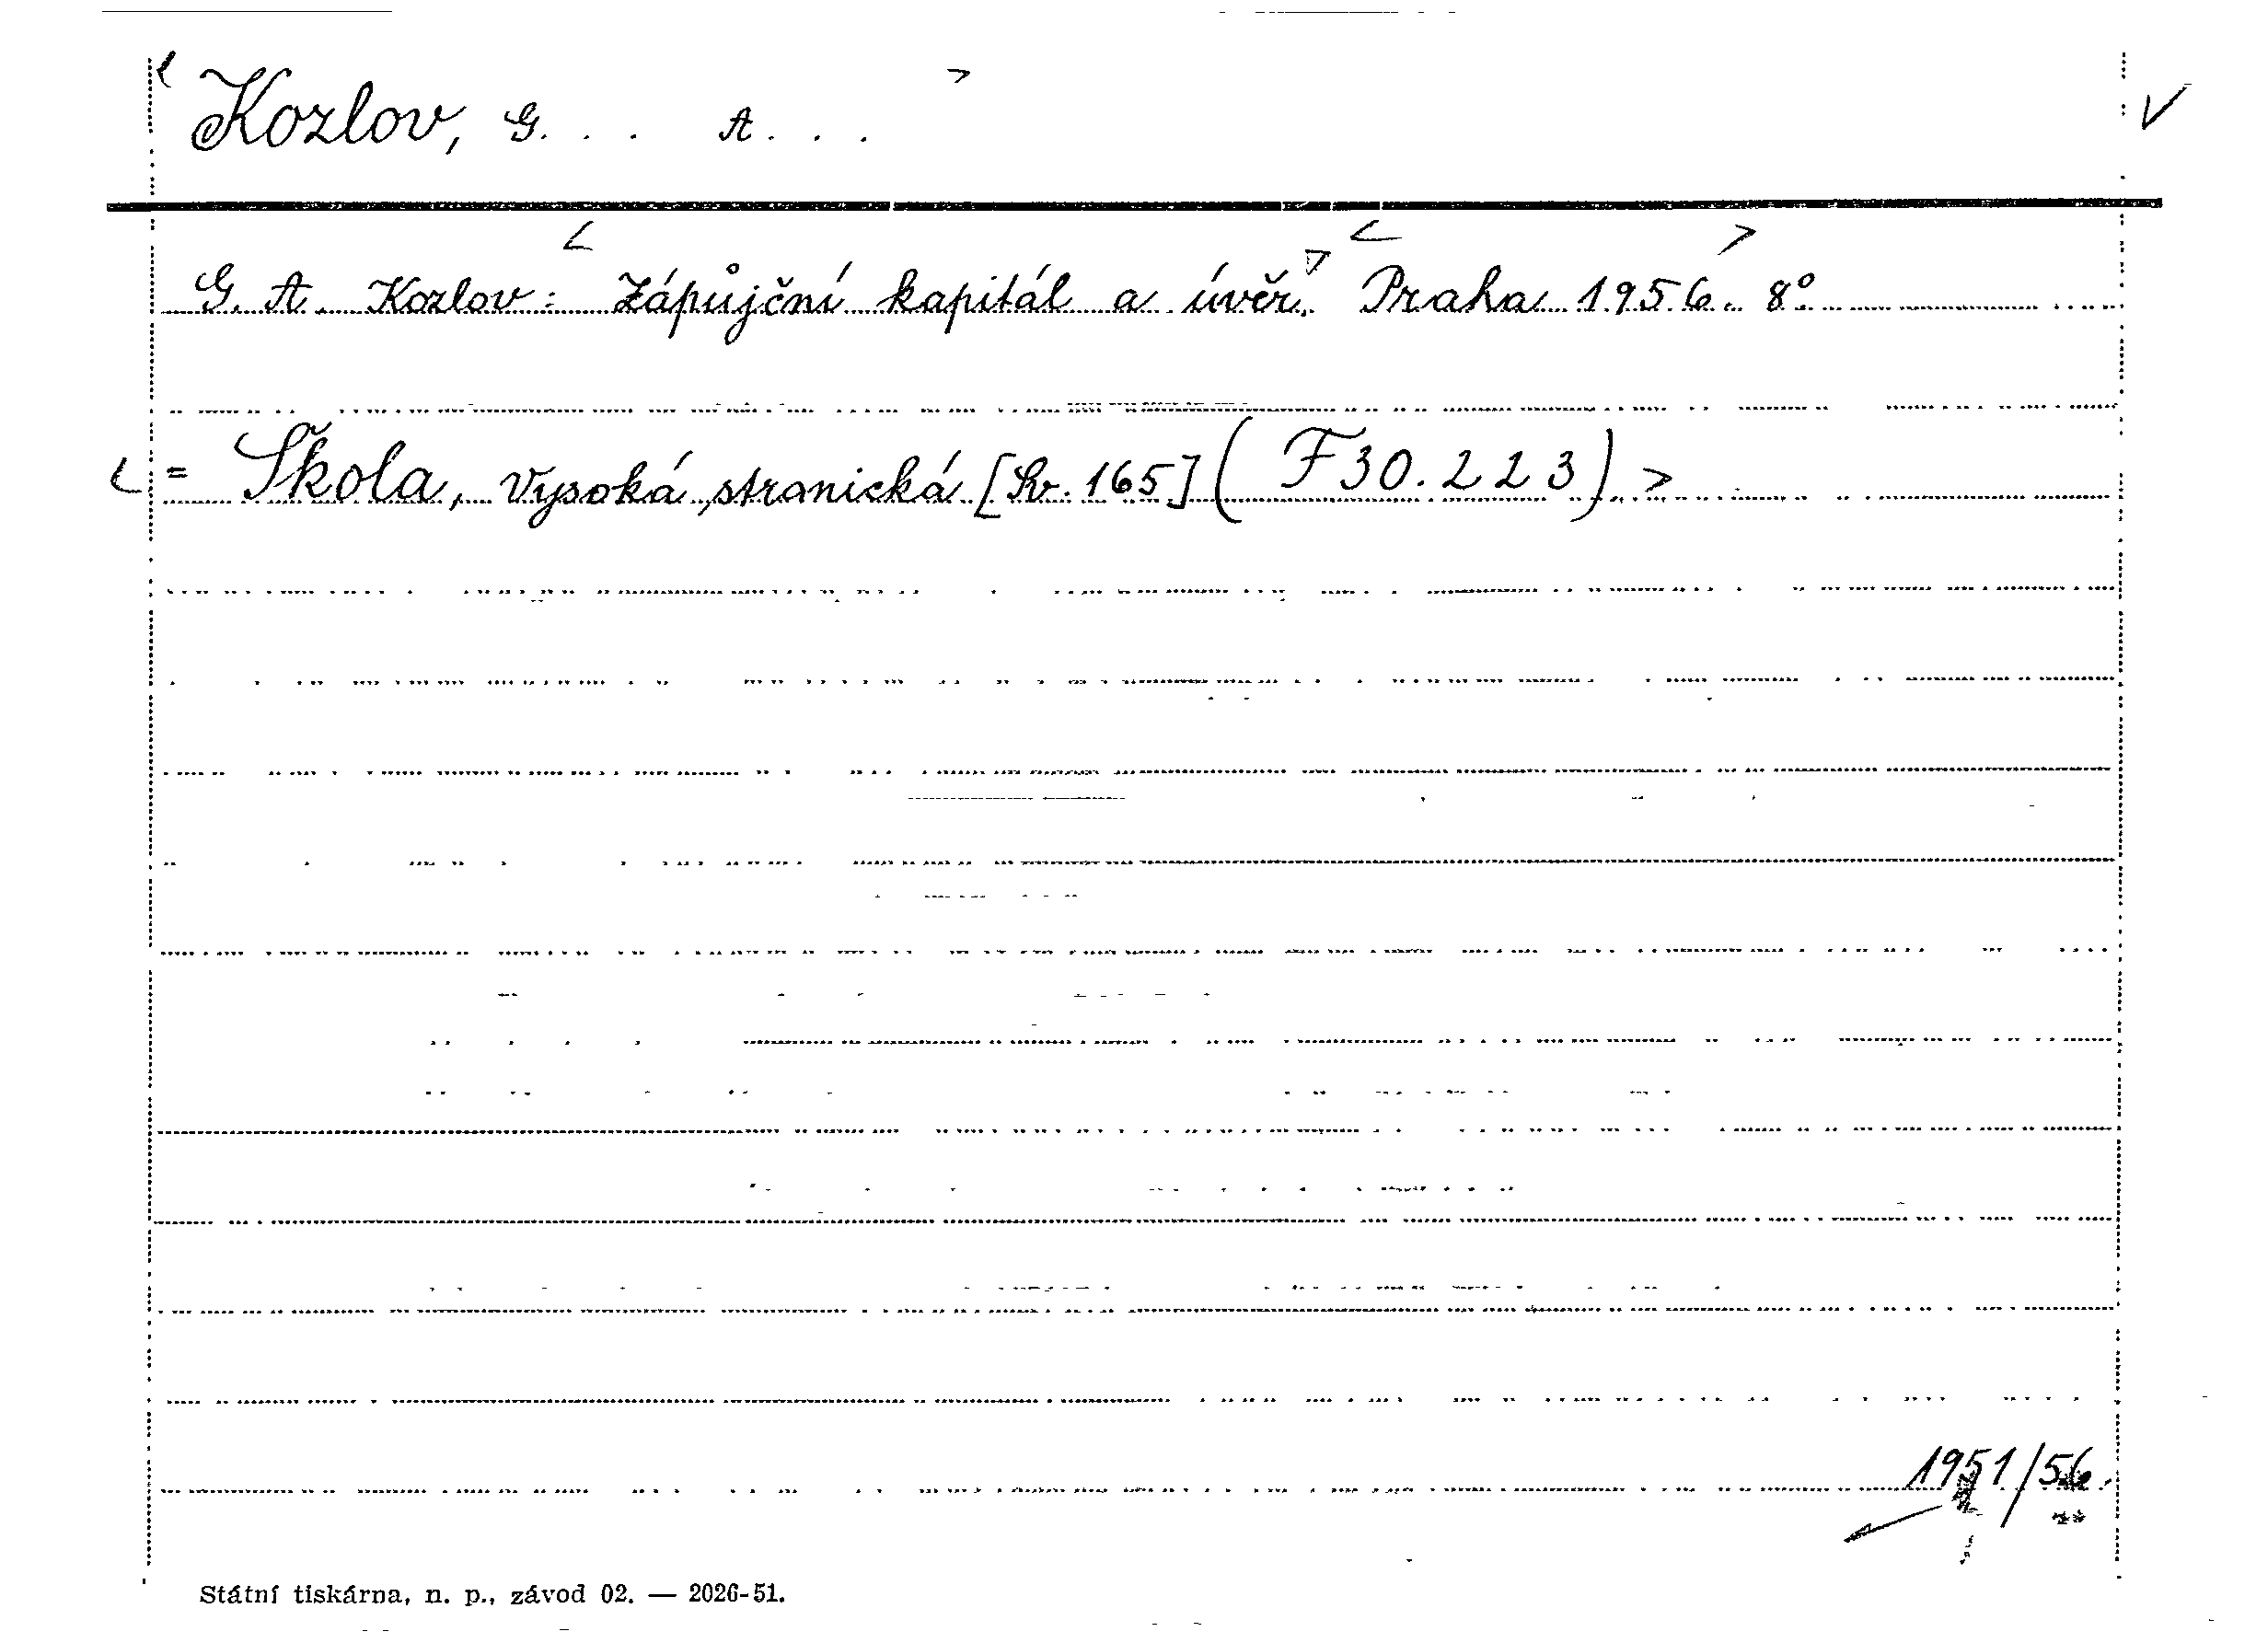 Kozlov, G. . . A. . . .
G. A. Kozlov: Zápůjční kapitál a úvěr. Praha 1956. 8°
= Škola, Vysoká stranická [Sv. 165] (F 30.223)
1951/56.
Státní tiskárna, n. p., závod 02. — 2026-51.